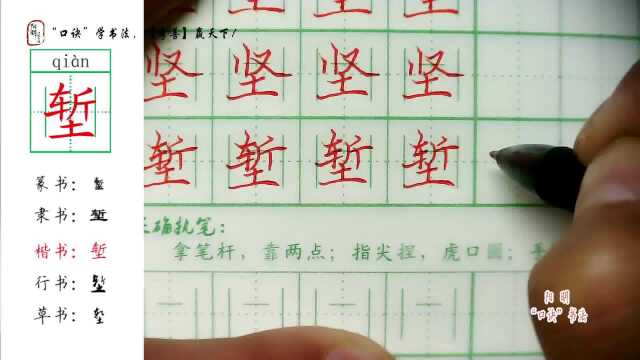 阳明
“口诀”学书法，
善】赢天下！
qiàn
堑
篆书：堑
隶书：堑
楷书：堑
行书：堑
草书：堑
坚 坚 坚 坚
堑 堑 堑 堑
正确执笔：
拿笔杆，靠两点；指尖捏，虎口圆；手
阳明
“口诀”书法